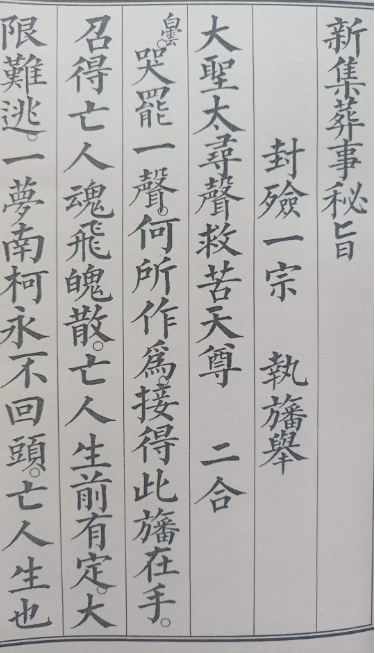 新集葬事秘旨
封殮一宗　執旛舉
大聖太尋聲救苦天尊　二合
白雲。哭罷一聲。何所作爲。接得此旛在手。
召得亡人魂飛魄散。亡人生前有定。大
限難逃。一夢南柯永不回頭。亡人生也